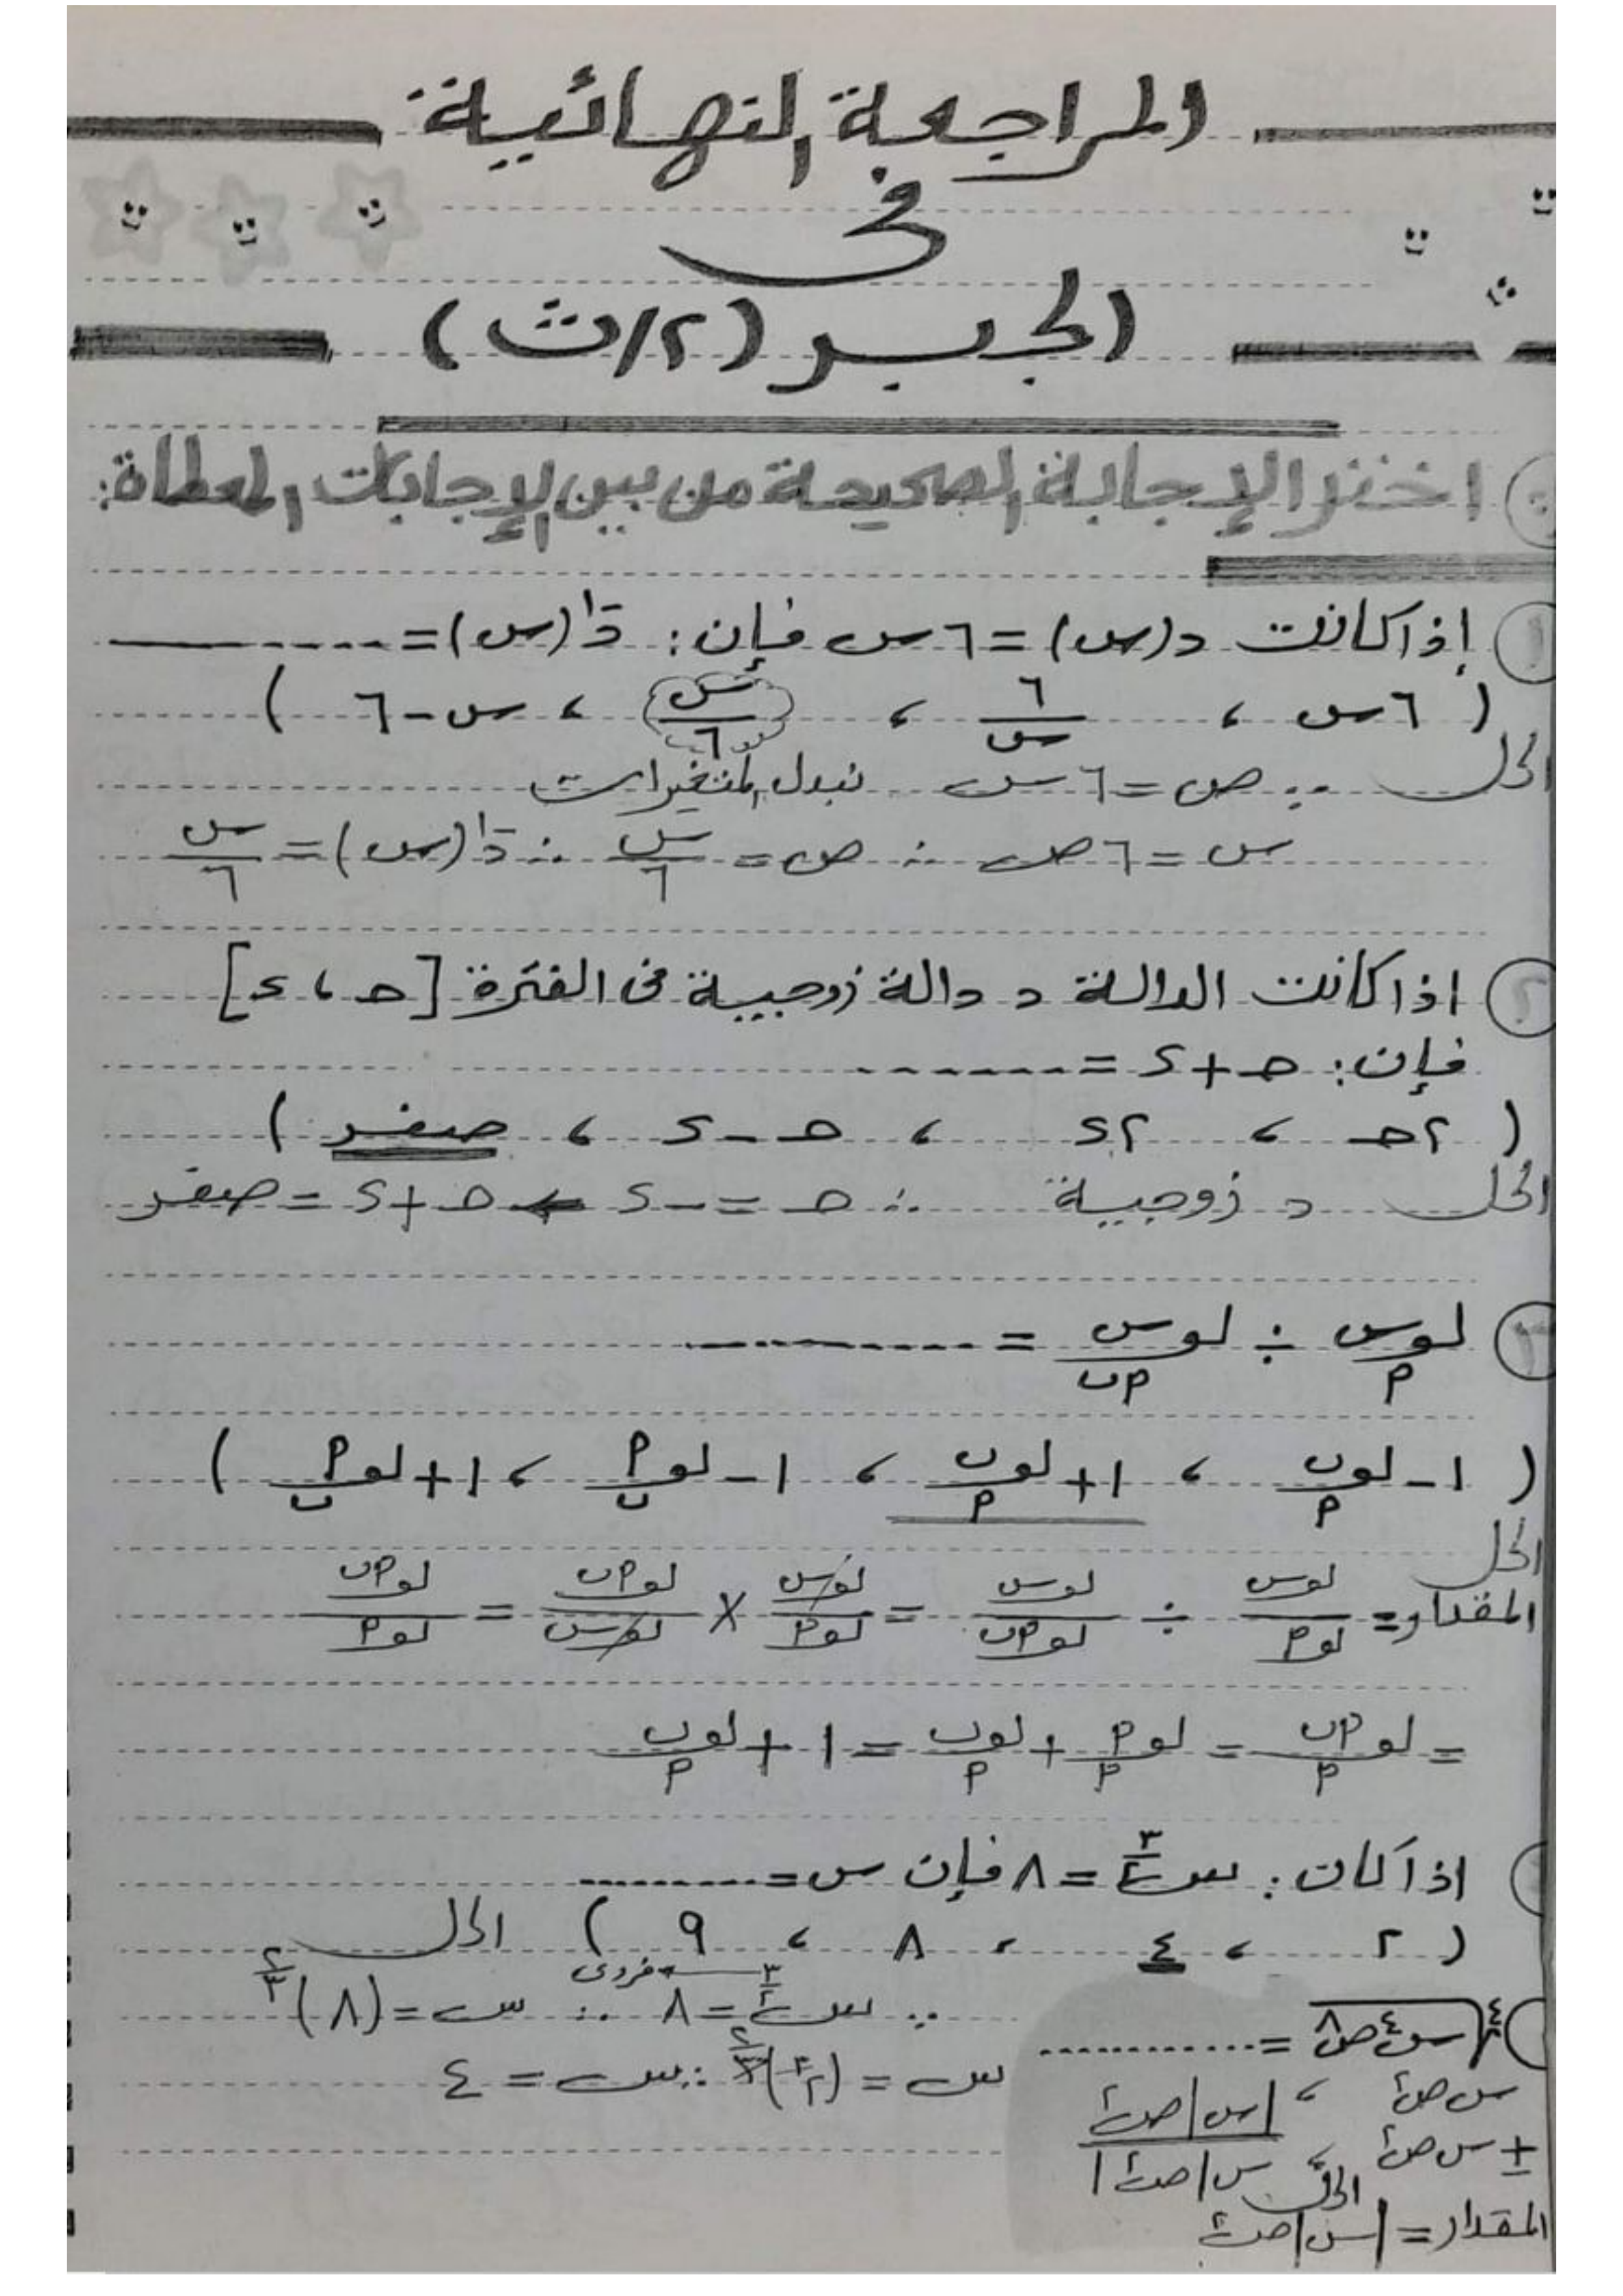 المراجعة النهائية
فى
الجبر (٢/ث)
اختر الإجابة الصحيحة من بين الإجابات المعطاة:
١ إذا كانت د(س) = ٦س فإن: د⁻¹(س) = --------
( ٦س ، ٦/س ، س/٦ ، س - ٦ )
الحل ∵ ص = ٦س نبدل المتغيرات
س = ٦ص ∴ ص = س/٦ ∴ د⁻¹(س) = س/٦
٢ اذا كانت الدالة د دالة زوجيية فى الفترة [حـ ، ء]
فإن: حـ + ء = -------
( ٢حـ ، ٢ء ، حـ - ء ، صفر )
الحل د زوجيية ∴ حـ = -ء ← حـ + ء = صفر
٣ لو_أ س ÷ لو_أب س = ---------
( ١ - لو_أ ب ، ١ + لو_أ ب ، ١ - لو_ب أ ، ١ + لو_ب أ )
الحل
المقدار = لوس/لوأ ÷ لوس/لوأب = لوس/لوأ × لوأب/لوس = لوأب/لوأ
= لو_أ أب = لو_أ أ + لو_أ ب = ١ + لو_أ ب
اذا كان: س^(٣/٢) = ٨ فإن س = ---------
( ٢ ، ٤ ، ٨ ، ٩ ) الحل
∵ س^(٣/٢) = ٨ ← فردى ∴ س = (٨)^(٢/٣)
س = (٢^٣)^(٢/٣) ∴ س = ٤
⁴√(س⁴ص⁸) = ------------
س ص² ، |س| ص²
± س ص² ، س |ص²|
الحل
المقدار = |س| ص²